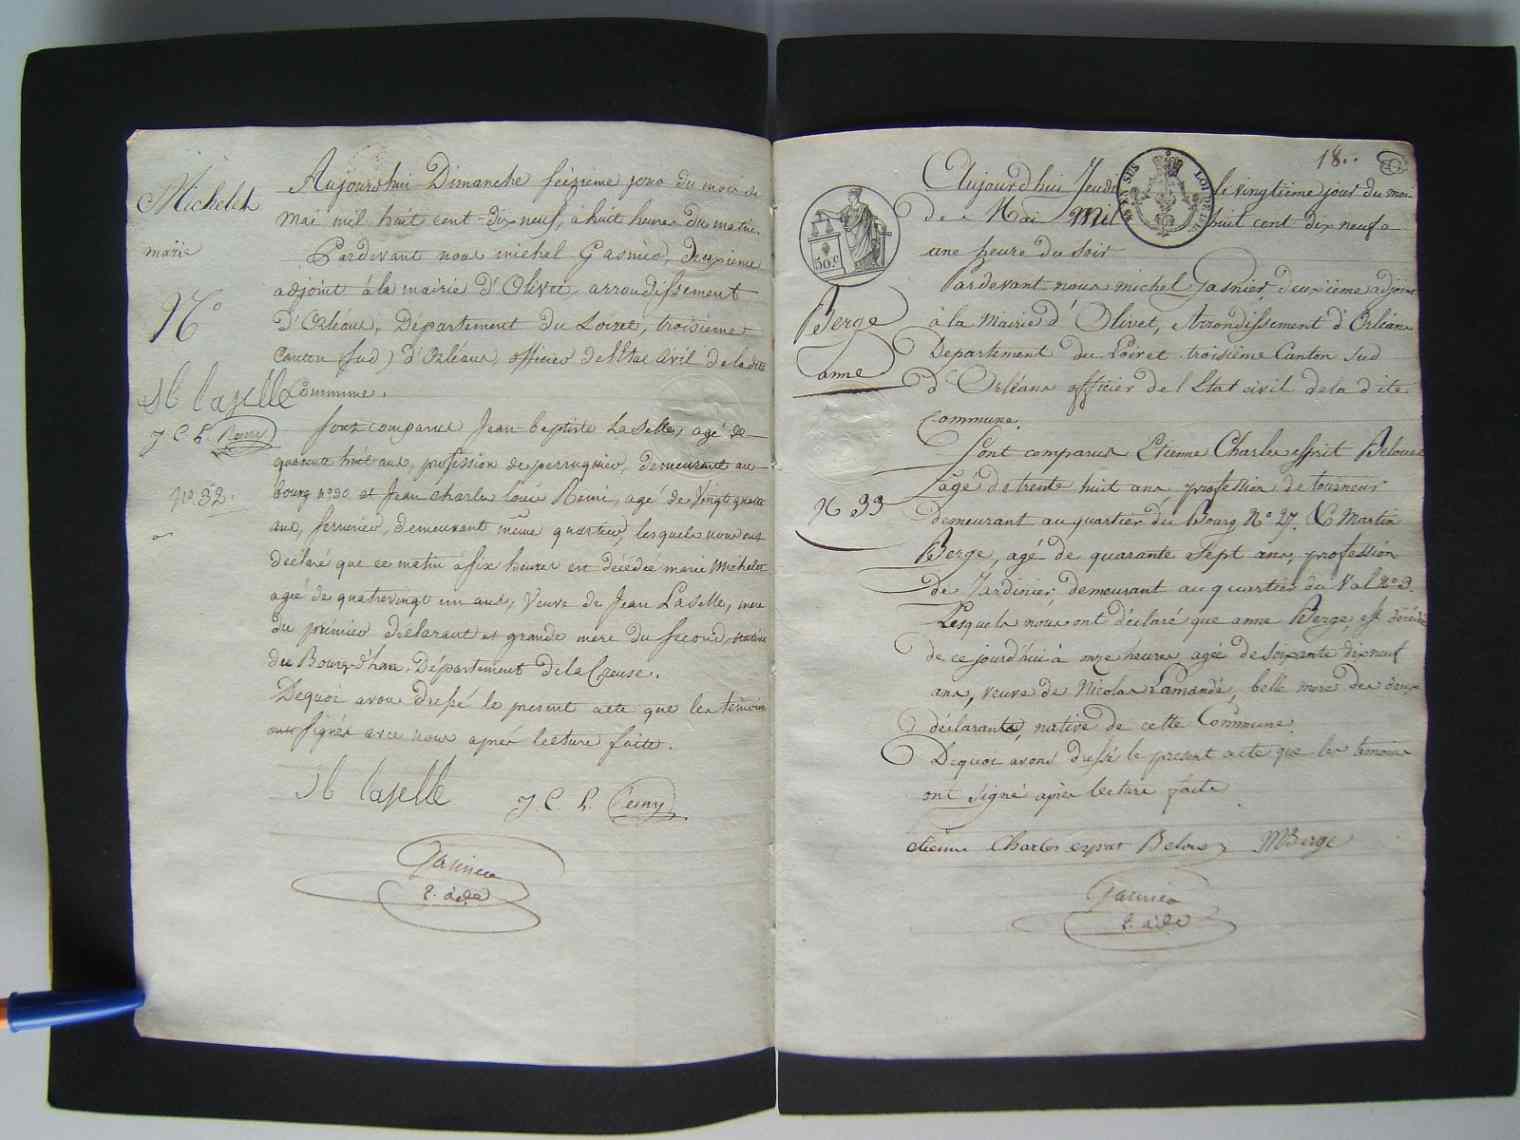 Michelet
marie
N°
JB laselle
J C L Remy
N° 32.
Aujourdhui Dimanche seizieme jour du mois de
mai mil huit cent dix neuf, a huit heures du matin.
Pardevant nous michel Gasnier, deuxieme
adjoint à la mairie d'Olivet arrondissement
d'Orléans, Département du Loiret, troisieme
Canton (sud) d'Orléans, officier de l'Etat civil de la dite
Commune.
sont comparus Jean baptiste Laselle, agé de
quarante huit ans, profession de perruquier, demeurant au
bourg n° 30 et Jean Charles louis Remi, agé de vingt quatre
ans, serrurier, demeurant même quartier, lesquels nous ont
déclaré que ce matin à six heures est décédée marie Michelet
agée de quatrevingt un ans, Veuve de Jean Laselle, mere
du premier déclarant et grande mere du second, native
de Bourg-d'hau, Département de la Creuse.
Dequoi avons dressé le present acte que les temoins
ont signés avec nous après lecture faite.
JB laselle J. C L. Remy
Gasnier
2. adj
18..
50c
Berge
anne
N 33
Aujourd'hui Jeudi le vingtieme jour du mois
de Mai Mil huit cent dix neuf a
une heure du soir
Pardevant nous michel Gasnier, deuxième adjoint
à la Mairie d'Olivet, Arrondissement d'Orléans
Département du Loiret troisième Canton Sud
d'Orléans officier de l'Etat civil de la dite
Commune.
Sont comparus Etienne Charles esprit Belouet
agé de trente huit ans profession de tourneur
demeurant au quartier du Bourg N° 27. & Martin
Berge, agé de quarante sept ans, profession
de Jardinier, demeurant au quartier du Val N° 3.
Lesquels nous ont déclaré que anne Berge, est décédée
de ce jourd'hui à onze heures agée de soixante dix neuf
ans, veuve de Nicolas Lamandé, belle mere des deux
déclarants, native de cette Commune.
Dequoi avons dressé le present acte que les temoins
ont signé après lecture faite.
etienne Charles esprit Belouet MBerge
Gasnier
2. adj